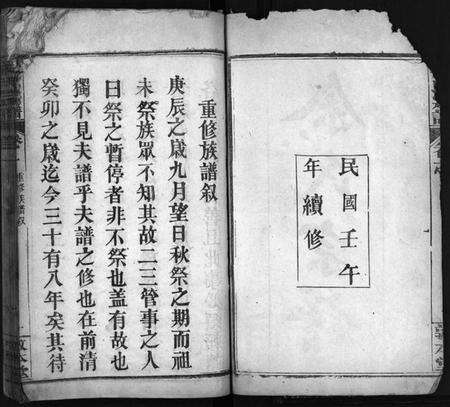 民國壬午
年續修
重修族譜叙
庚辰之歲九月望日秋祭之期而祖
未祭族眾不知其故二三管事之人
曰祭之暫停者非不祭也盖有故也
獨不見夫譜乎夫譜之修也在前清
癸卯之歲迄今三十有八年矣其待
重修族譜叙